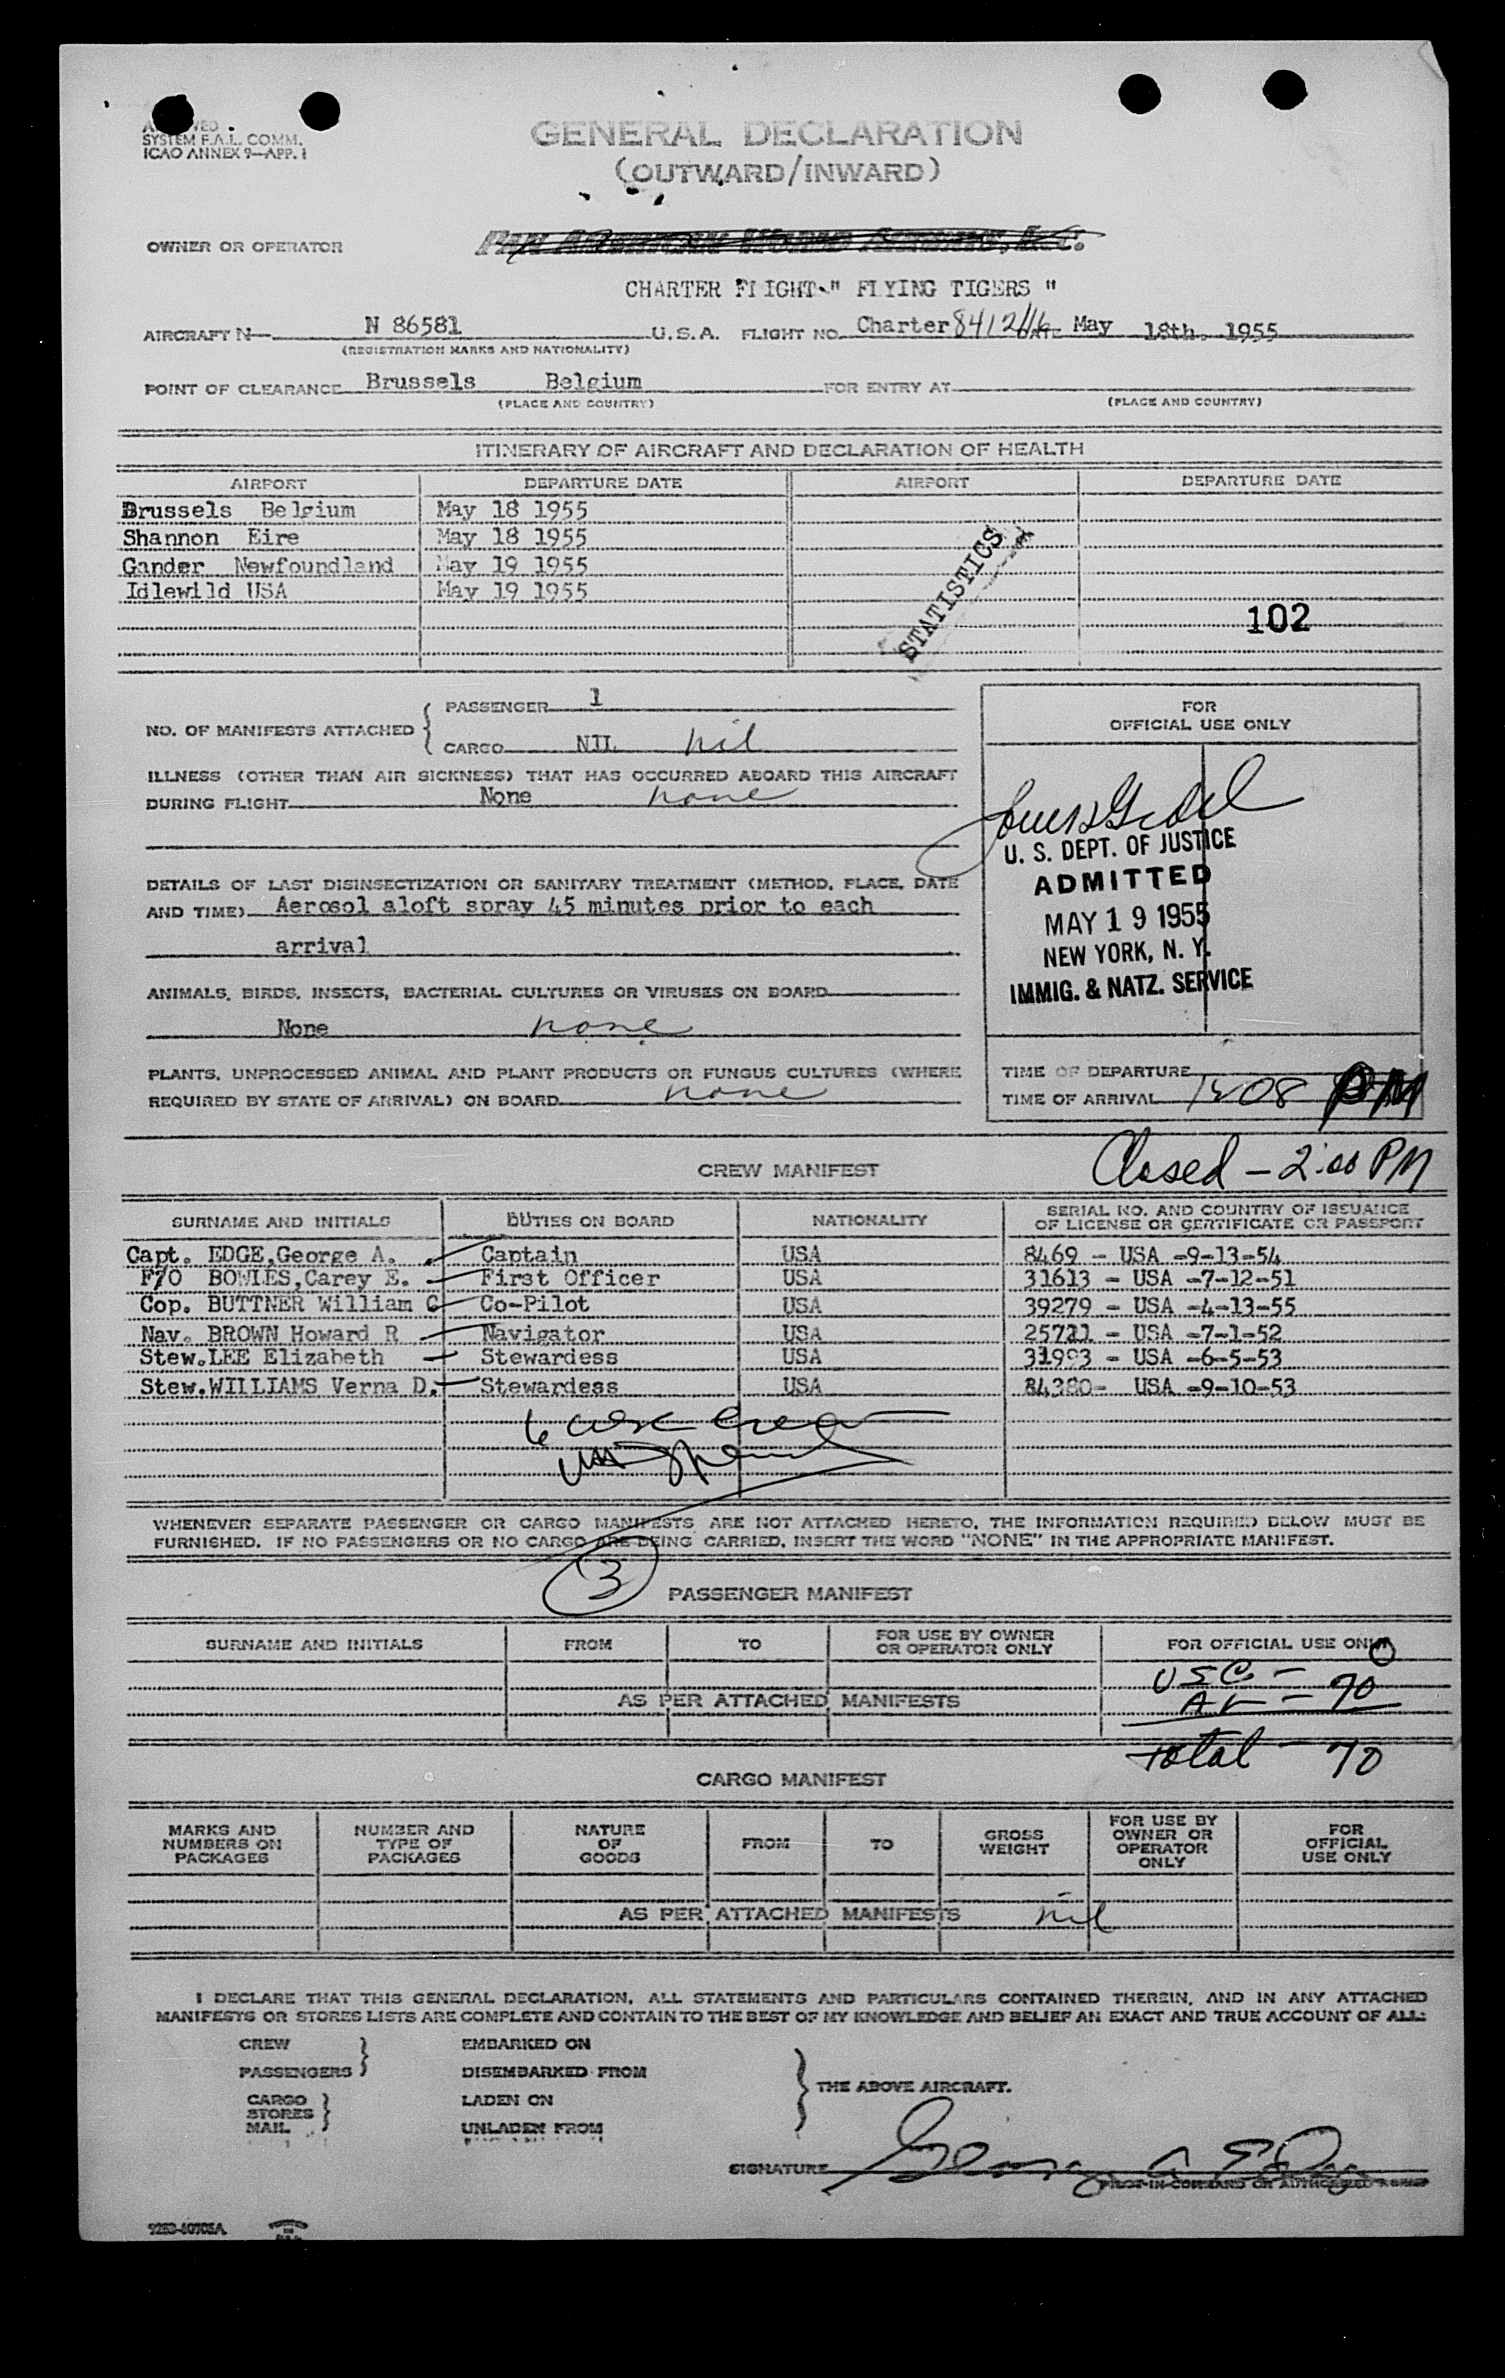 SYSTEM F.A.L. COMM.
ICAO ANNEX 9—APP. 1
GENERAL DECLARATION
(OUTWARD/INWARD)
OWNER OR OPERATOR PAN AMERICAN WORLD AIRWAYS, INC.
CHARTER FLIGHT " FLYING TIGERS "
AIRCRAFT N N 86581 U.S.A. FLIGHT NO. Charter 8412/16 DATE May 18th. 1955
(REGISTRATION MARKS AND NATIONALITY)
POINT OF CLEARANCE Brussels Belgium FOR ENTRY AT
(PLACE AND COUNTRY) (PLACE AND COUNTRY)
ITINERARY OF AIRCRAFT AND DECLARATION OF HEALTH
AIRPORT DEPARTURE DATE AIRPORT DEPARTURE DATE
Brussels Belgium May 18 1955
Shannon Eire May 18 1955
Gander Newfoundland May 19 1955
Idlewild USA May 19 1955
STATISTICS
102
NO. OF MANIFESTS ATTACHED
PASSENGER 1
CARGO NIL nil
ILLNESS (OTHER THAN AIR SICKNESS) THAT HAS OCCURRED ABOARD THIS AIRCRAFT
DURING FLIGHT None none
DETAILS OF LAST DISINSECTIZATION OR SANITARY TREATMENT (METHOD, PLACE, DATE
AND TIME) Aerosol aloft spray 45 minutes prior to each
arrival
ANIMALS, BIRDS, INSECTS, BACTERIAL CULTURES OR VIRUSES ON BOARD
None none
PLANTS, UNPROCESSED ANIMAL AND PLANT PRODUCTS OR FUNGUS CULTURES (WHERE
REQUIRED BY STATE OF ARRIVAL) ON BOARD none
FOR
OFFICIAL USE ONLY
U. S. DEPT. OF JUSTICE
ADMITTED
MAY 19 1955
NEW YORK, N. Y.
IMMIG. & NATZ. SERVICE
TIME OF DEPARTURE
TIME OF ARRIVAL 1208 PM
Closed - 2:00 PM
CREW MANIFEST
SURNAME AND INITIALS DUTIES ON BOARD NATIONALITY SERIAL NO. AND COUNTRY OF ISSUANCE
OF LICENSE OR CERTIFICATE OR PASSPORT
Capt. EDGE,George A. Captain USA 8469 - USA -9-13-54
F/O BOWLES,Carey E. First Officer USA 31613 - USA -7-12-51
Cop. BUTTNER William C Co-Pilot USA 39279 - USA -4-13-55
Nav. BROWN Howard R Navigator USA 25711 - USA -7-1-52
Stew.LEE Elizabeth Stewardess USA 31993 - USA -6-5-53
Stew.WILLIAMS Verna D. Stewardess USA 84380- USA -9-10-53
6 crew
WHENEVER SEPARATE PASSENGER OR CARGO MANIFESTS ARE NOT ATTACHED HERETO, THE INFORMATION REQUIRED BELOW MUST BE
FURNISHED. IF NO PASSENGERS OR NO CARGO ARE BEING CARRIED, INSERT THE WORD "NONE" IN THE APPROPRIATE MANIFEST.
3
PASSENGER MANIFEST
SURNAME AND INITIALS FROM TO FOR USE BY OWNER
OR OPERATOR ONLY FOR OFFICIAL USE ONLY
USC - 0
AS PER ATTACHED MANIFESTS
AL - 70
Total - 70
CARGO MANIFEST
MARKS AND
NUMBERS ON
PACKAGES
NUMBER AND
TYPE OF
PACKAGES
NATURE
OF
GOODS
FROM
TO
GROSS
WEIGHT
FOR USE BY
OWNER OR
OPERATOR
ONLY
FOR
OFFICIAL
USE ONLY
AS PER ATTACHED MANIFESTS nil
I DECLARE THAT THIS GENERAL DECLARATION, ALL STATEMENTS AND PARTICULARS CONTAINED THEREIN, AND IN ANY ATTACHED
MANIFESTS OR STORES LISTS ARE COMPLETE AND CONTAIN TO THE BEST OF MY KNOWLEDGE AND BELIEF AN EXACT AND TRUE ACCOUNT OF ALL:
CREW EMBARKED ON
PASSENGERS DISEMBARKED FROM
THE ABOVE AIRCRAFT.
CARGO LADEN ON
STORES
MAIL UNLADEN FROM
SIGNATURE George A Edge
PILOT-IN-COMMAND OR AUTHORIZED AGENT